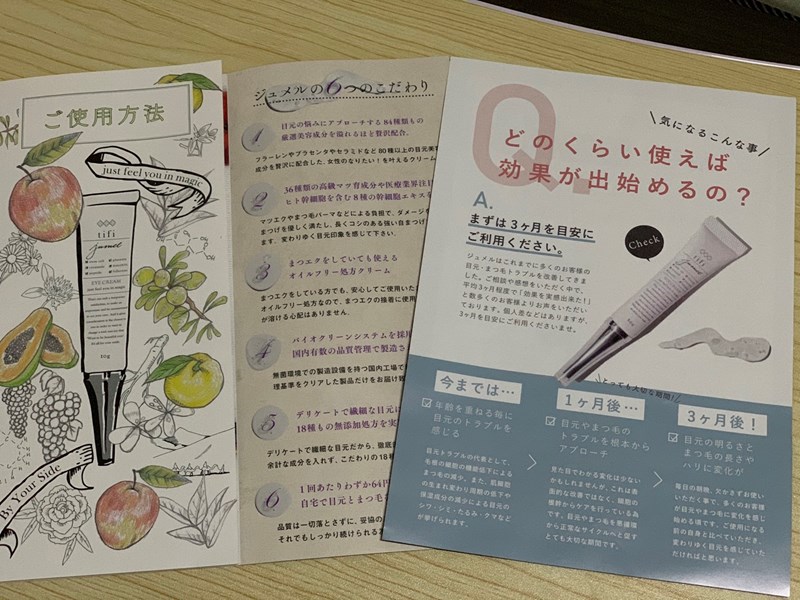 ご使用方法
just feel you in magic
tifi
jumel
EYECREAM
10g
By Your Side
ジュメルの6つのこだわり
1
目元の悩みにアプローチする84種類もの
厳選美容成分を溢れるほど贅沢配合。
フラーレンやプラセンタやセラミドなど80種以上の目元美容
成分を贅沢に配合した、女性のなりたい!を叶えるクリーム
2
36種類の高級マツ育成分や医療業界注目
ヒト幹細胞を含む8種の幹細胞エキス
マツエクやまつ毛パーマなどによる負担で、ダメージ
まつげを優しく満たし、長くコシのある強い自まつげ
ます。変わりゆく目元印象を感じて下さい。
3
まつエクをしていても使える
オイルフリー処方クリーム
まつエクをしている方でも、安心してご使用いただ
オイルフリー処方なので、まつエクの接着に使用
が溶ける心配はありません。
4
バイオクリーンシステムを採用
国内有数の品質管理で製造さ
無菌環境での製造設備を持つ国内工場で
理基準をクリアした製品だけをお届け
5
デリケートで繊細な目元に
18種もの無添加処方を実
デリケートで繊細な目元だから、徹底
余計な成分を入れず、こだわりの18種
6
1回あたりわずか64円
自宅で目元とまつ毛
品質は一切落とさずに、妥協の
それでもしっかり続けられる
気になるこんな事
Q.
どのくらい使えば
効果が出始めるの?
A.
まずは3ヶ月を目安に
ご利用ください。
ジュメルはこれまでに多くのお客様の
目元・まつ毛トラブルを改善してきま
した。ご相談や感想をいただく中で、
平均3ヶ月程度で「効果を実感出来た!」
と数多くのお客様よりお声をいただい
ております。個人差などはありますが、
3ヶ月を目安にご利用くださいませ。
Check
tifi
jumel
10g
とっても大切な期間!
今までは…
年齢を重ねる毎に
目元のトラブルを
感じる
目元トラブルの代表として、
毛根の細胞の機能低下による
まつ毛の減少。また、肌細胞
の生まれ変わり周期の低下や
保湿成分の減少による目元の
シワ・シミ・たるみ・クマなど
が挙げられます。
1ヶ月後…
目元やまつ毛の
トラブルを根本から
アプローチ
見た目でわかる変化は少ない
かもしれませんが、これは表
面的な改善ではなく、細胞の
根幹からケアを行っている為
です。目元やまつ毛を悪循環
から正常なサイクルへと促す
とても大切な期間です。
3ヶ月後!
目元の明るさと
まつ毛の長さや
ハリに変化が
毎日の朝晩、欠かさずお使い
いただく事で、多くのお客様
が目元やまつ毛に変化を感じ
始める頃です。ご使用になる
前の自身と比べていただき、
変わりゆく目元を感じていた
だければと思います。